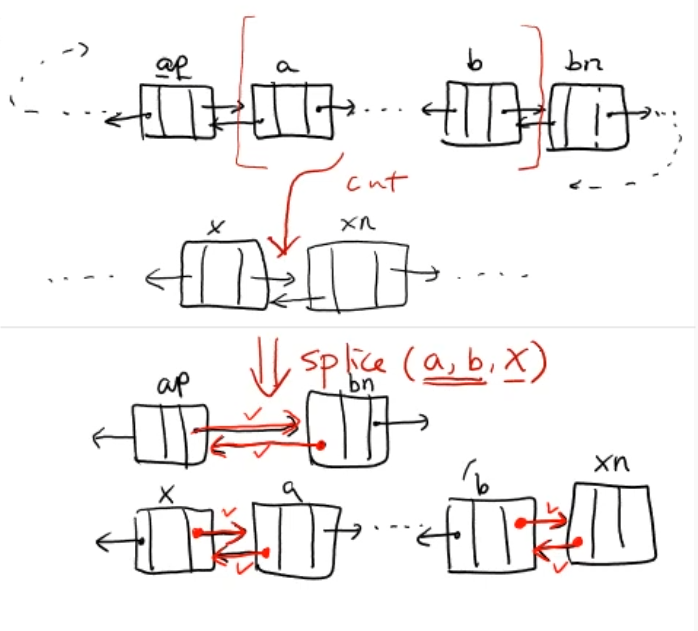 ap a b bn
cut
x xn
splice (a, b, x)
ap bn
x a b xn